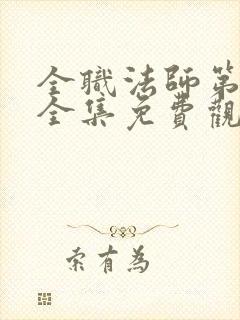 全職法師第
全集免費觀
索有為